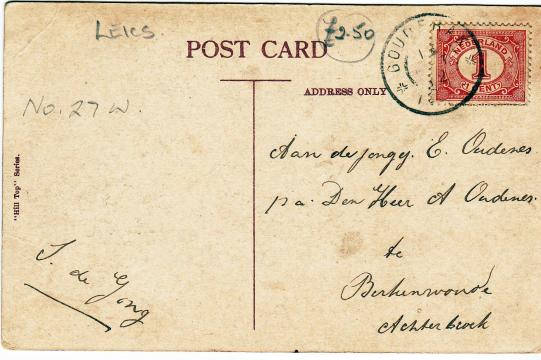 LEICS.
£2.50
POST CARD
ADDRESS ONLY
GOUDE
NEDERLAND
1
1 CENT
No. 27 W.
"Hill Top" Series.
Aan de jongg. E. Oudenes
p/a. Den Heer A Oudenes.
te
Berkenwoude
Achterbroek
J. de Jong